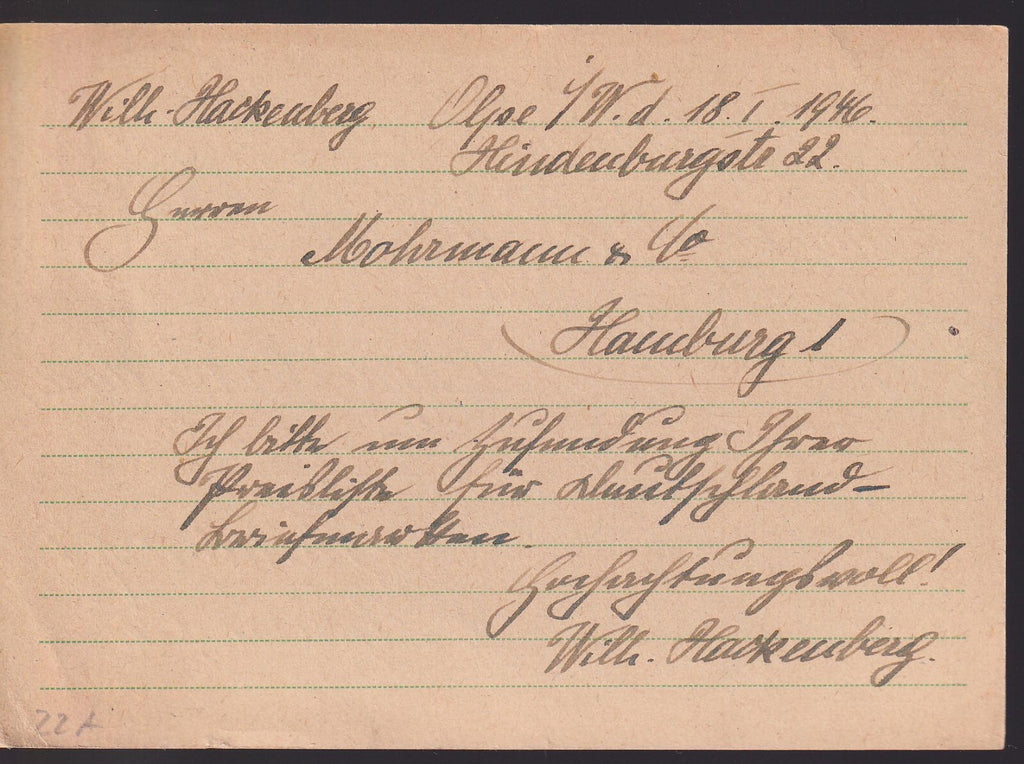 Wilh. Hackenberg. Olpe i/W. d. 18. I. 1946.
Hindenburgstr 22.
Herren
Mohrmann & Co
Hamburg 1
Ich bitte um Zusendung Ihrer
Preisliste für Deutschland-
Briefmarken.
Hochachtungsvoll!
Wilh. Hackenberg.
22 A